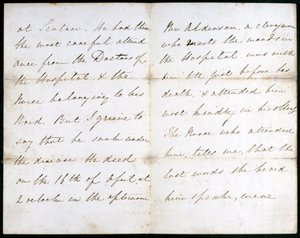 at Scutari. He had there
the most careful attend
ance from the Doctors of
the Hospital & the
Nurse belonging to his
Ward. But I grieve to
say that he sunk under
the disease. He died
on the 16th of April at
2 o'clock in the afternoon
a clergyman
who visits the wards in
the Hospital was with
him till just before his
death, & attended him
most kindly in his illness
The Nurse who attended
him, tells me, that the
last words she heard
him speak, were